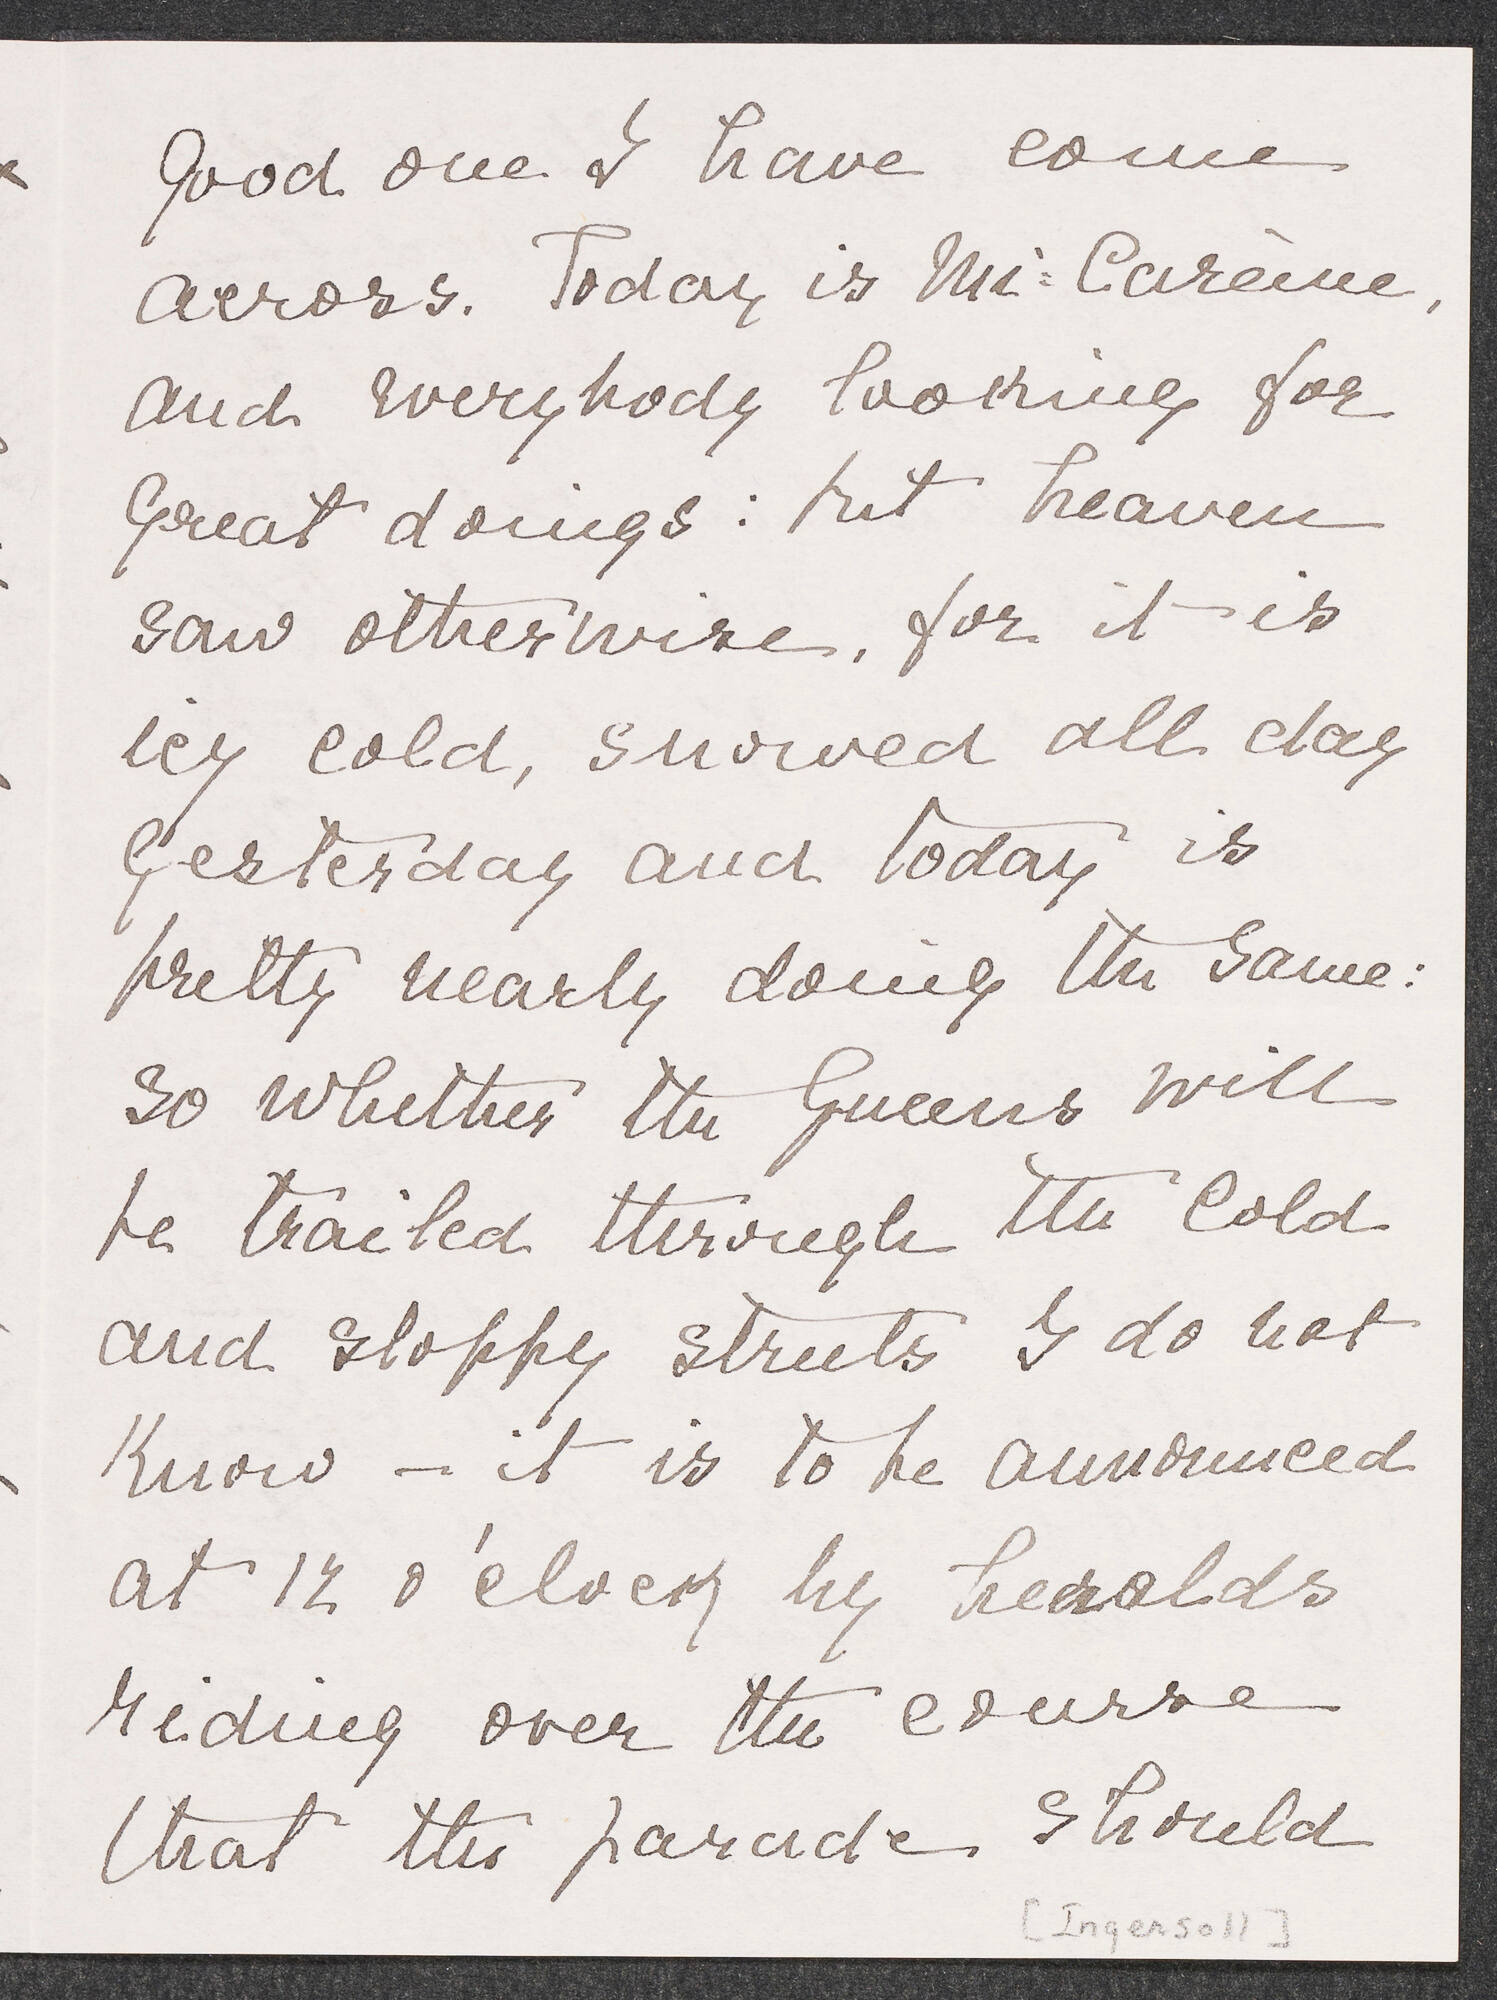 Good one I have come
across. Today is Mi-Carème,
and everybody looking for
Great doings: but heaven
saw otherwise, for it is
icy cold, snowed all day
Yesterday and today is
pretty nearly doing the same:
so whether the Queens will
be trailed through the cold
and sloppy streets I do not
Know — it is to be announced
at 12 o'clock by heralds
riding over the course
that the parade should
[Ingersoll]